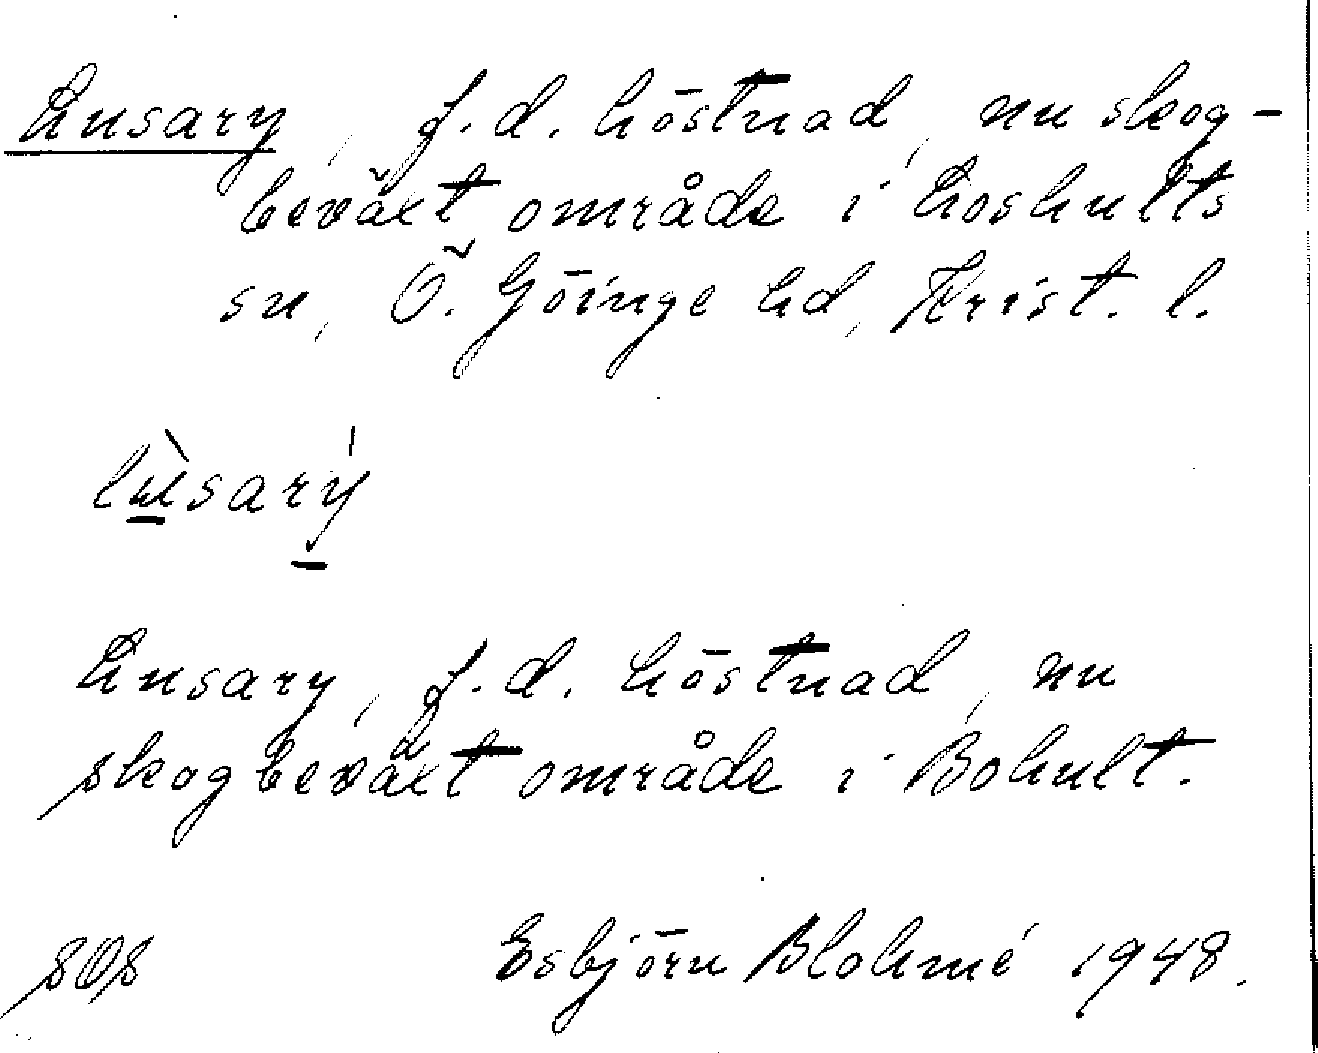 Lusary, f.d. höstnad, nu skog-
beväxt område i Loshults
sn, Ö. Göinge hd, Krist. l.
lùsarý
Lusary, f.d. höstnad, nu
skogbeväxt område i Bohult.
Esbjörn Blohmé 1948.